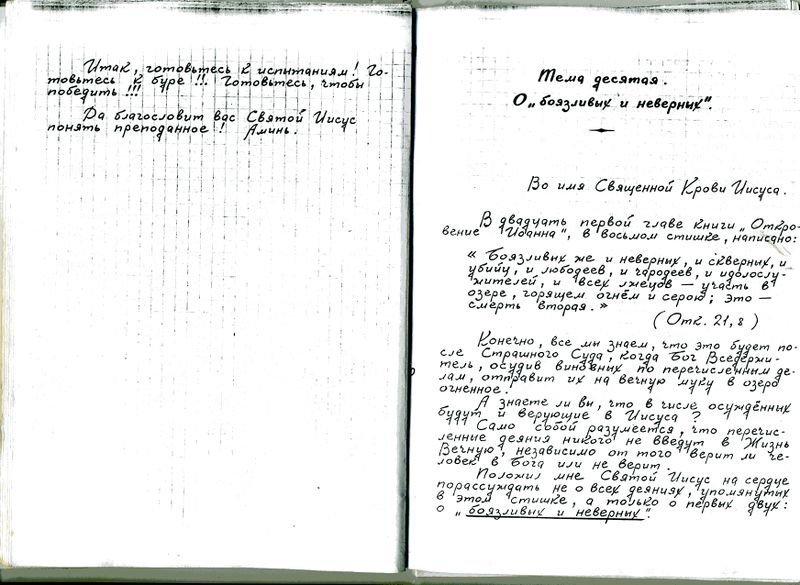 Итак, готовьтесь к испытаниям! Го-
товьтесь к буре!!! Готовьтесь, чтобы
победить!!!
Да благословит вас Святой Иисус
понять преподанное! Аминь.
Тема десятая.
О „боязливых и неверных".
Во имя Священной Крови Иисуса.
В двадцать первой главе книги „Откро-
вение Иоанна", в восьмом стишке, написано:
« Боязливых же и неверных, и скверных, и
убийц, и любодеев, и чародеев, и идолослу-
жителей, и всех лжецов — участь в
озере, горящем огнём и серою; это —
смерть вторая.»
(Отк. 21,8)
Конечно, все мы знаем, что это будет по-
сле Страшного Суда, когда Бог Вседержи-
тель, осудив виновных по перечисленным де-
лам, отправит их на вечную муку в озеро
огненное.
А знаете ли вы, что в числе осуждённых
будут и верующие в Иисуса?
Само собой разумеется, что перечис-
ленные деяния никого не введут в Жизнь
Вечную, независимо от того верит ли че-
ловек в Бога или не верит.
Положил мне Святой Иисус на сердце
порассуждать не о всех деяниях, упомянутых
в этом стишке, а только о первых двух:
о „боязливых и неверных".